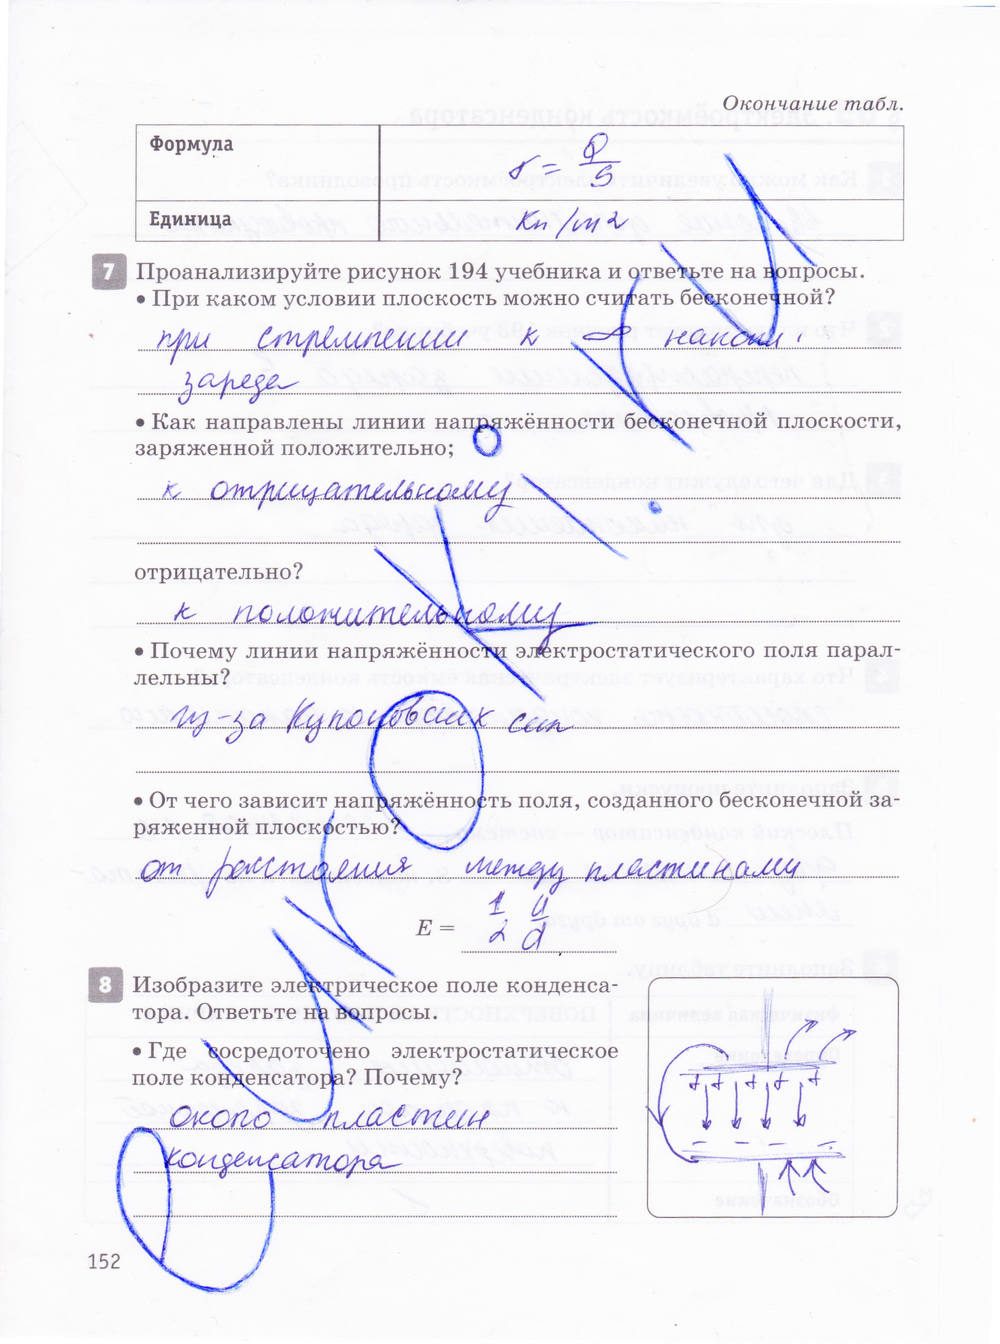 Окончание табл.
Формула
σ = Q/S
Единица
Кл/м2
7 Проанализируйте рисунок 194 учебника и ответьте на вопросы.
• При каком условии плоскость можно считать бесконечной?
при стремлении к накопл.
зареда
• Как направлены линии напряжённости бесконечной плоскости,
заряженной положительно;
к отрицательному
отрицательно?
к положительному
• Почему линии напряжённости электростатического поля парал-
лельны?
из-за Кулоновских сил
• От чего зависит напряжённость поля, созданного бесконечной за-
ряженной плоскостью?
от расстояния между пластинами
E = 1/2 U/d
8 Изобразите электрическое поле конденса-
тора. Ответьте на вопросы.
• Где сосредоточено электростатическое
поле конденсатора? Почему?
около пластин
конденсатора
152